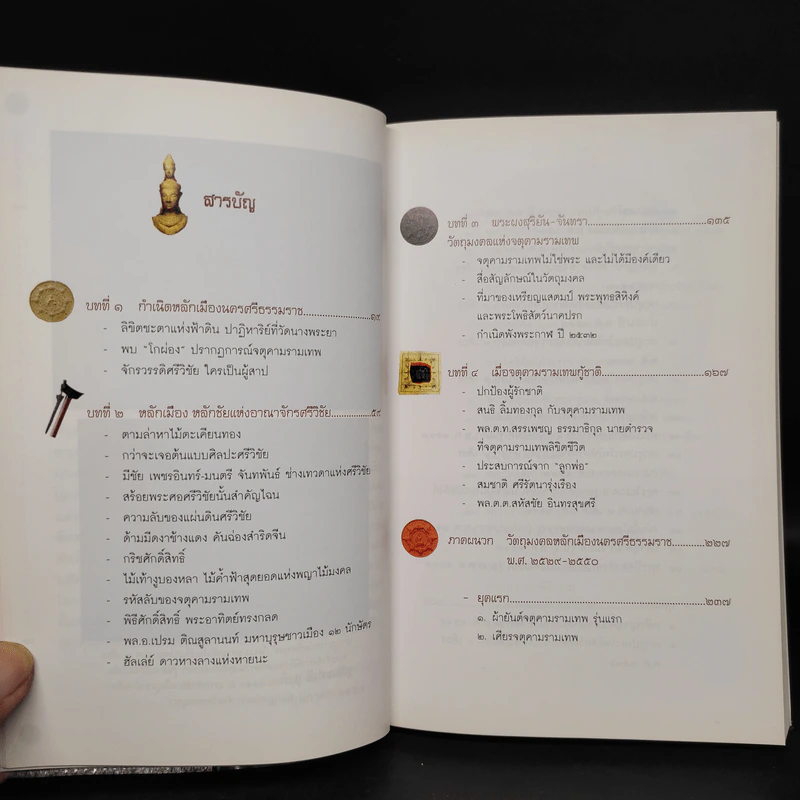 สารบัญ
บทที่ ๑ กำเนิดหลักเมืองนครศรีธรรมราช..................๑๙
- ลิขิตชะตาแห่งฟ้าดิน ปาฏิหาริย์ที่วัดนางพระยา
- พบ "โกผ่อง" ปรากฏการณ์จตุคามรามเทพ
- จักรวรรดิศรีวิชัย ใครเป็นผู้สาป
บทที่ ๒ หลักเมือง หลักชัยแห่งอาณาจักรศรีวิชัย..........๕๙
- ตามล่าหาไม้ตะเคียนทอง
- กว่าจะเจอต้นแบบศิลปะศรีวิชัย
- มีชัย เพชรอินทร์-มนตรี จันทพันธ์ ช่างเทวดาแห่งศรีวิชัย
- สร้อยพระศอศรีวิชัยนั้นสำคัญไฉน
- ความลับของแผ่นดินศรีวิชัย
- ด้ามมีดงาช้างแดง คันฉ่องสำริดจีน
- กริชศักดิ์สิทธิ์
- ไม้เท้างูบองหลา ไม้ค้ำฟ้าสุดยอดแห่งพญาไม้มงคล
- รหัสลับของจตุคามรามเทพ
- พิธีศักดิ์สิทธิ์ พระอาทิตย์ทรงกลด
- พล.อ.เปรม ติณสูลานนท์ มหาบุรุษชาวเมือง ๑๒ นักษัตร
- ฮัลเล่ย์ ดาวหางลางแห่งหายนะ
บทที่ ๓ พระผงสุริยัน-จันทรา..............................๑๓๕
วัตถุมงคลแห่งจตุคามรามเทพ
- จตุคามรามเทพไม่ใช่พระ และไม่ได้มีองค์เดียว
- สื่อสัญลักษณ์ในวัตถุมงคล
- ที่มาของเหรียญแสตมป์ พระพุทธสิหิงค์
และพระโพธิสัตว์นาคปรก
- กำเนิดพังพระกาฬ ปี ๒๕๓๒
บทที่ ๔ เมื่อจตุคามรามเทพกู้ชาติ..........................๑๖๗
- ปกป้องผู้รักชาติ
- สนธิ ลิ้มทองกุล กับจตุคามรามเทพ
- พล.ต.ท.สรรเพชญ ธรรมาธิกุล นายตำรวจ
ที่จตุคามรามเทพลิขิตชีวิต
- ประสบการณ์จาก "ลูกพ่อ"
- สมชาติ ศรีรัตนารุ่งเรือง
- พล.ต.ต.สหัสชัย อินทรสุขศรี
ภาคผนวก วัตถุมงคลหลักเมืองนครศรีธรรมราช...........๒๒๗
พ.ศ. ๒๕๒๙-๒๕๕๐
- ยุคแรก..................................................๒๓๗
๑. ผ้ายันต์จตุคามรามเทพ รุ่นแรก
๒. เศียรจตุคามรามเทพ